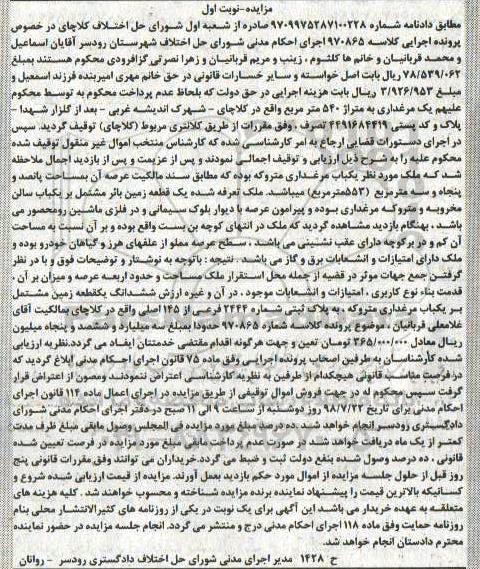 مزایده-نوبت اول
مطابق دادنامه شماره ۹۷۰۹۹۷۵۲۸۷۱۰۰۲۲۸ صادره از شعبه اول شورای حل اختلاف کلاچای در خصوص
پرونده اجرایی کلاسه ۹۷۰۸۶۵ اجرای احکام مدنی شورای حل اختلاف شهرستان رودسر آقایان اسماعیل
و محمد قربانیان و خانم ها کلثوم ، زینب و مریم قربانیان و زهرا نصرتی گزافرودی محکوم هستند بمبلغ
۷۸/۵۳۹/۰۶۲ ریال بابت اصل خواسته و سایر خسارات قانونی در حق خانم مهری امیربنده فرزند اسمعیل و
مبلغ ۳/۹۲۶/۹۵۳ ریال بابت هزینه اجرایی در حق دولت که بلحاظ عدم پرداخت محکوم به توسط محکوم
علیهم یک مرغداری به متراژ ۵۴۰ متر مربع واقع در کلاچای – شهرک اندیشه غربی – بعد از گلزار شهدا –
پلاک و کد پستی ۴۴۹۱۶۸۴۳۱۹ تصرف ، وفق مقررات از طریق کلانتری مربوط (کلاچای) توقیف گردید. سپس
در اجرای دستورات قضایی ارجاع به امر کارشناسی شده که کارشناس منتخب اموال غیر منقول توقیف شده
محکوم علیه را به شرح ذیل ارزیابی و توقیف اجمالی نمودند و پس از عزیمت و پس از بازدید اجمال ملاحظه
شد که ملک مورد نظر یکباب مرغداری متروکه بوده که مطابق سند مالکیت عرصه آن بمساحت پانصد و
پنجاه و سه مترمربع (۵۵۳مترمربع) میباشد. ملک تعرفه شده یک قطعه زمین بائر مشتمل بر یکباب سالن
مخروبه و متروکه مرغداری بوده و پیرامون عرصه با دیوار بلوک سیمانی و در فلزی ماشین رومحصور می
باشد ، بهنگام بازدید مشاهده گردید که ملک در انتهای کوچه بن بست واقع بوده و بر آن نسبت به مساحت
آن کم و در برکوچه دارای عقب نشینی می باشد ، سطح عرصه مملو از علفهای هرز و گیاهان خودرو بوده و
ملک دارای امتیازات و انشعابات برق و گاز می باشد . نتیجه : باتوجه به نوشتار و توضیحات فوق و با در نظر
گرفتن جمع جهات موثر در قضیه از جمله محل استقرار ملک مساحت و حدود اربعه عرصه و میزان بر آن ،
قدمت بناء نوع کاربری ، امتیازات و انشعابات موجود ، در آن و غیره ارزش ششدانگ یکقطعه زمین مشتمل
بر یکباب مرغداری متروکه ، به پلاک ثبتی شماره ۲۴۴۴ فرعی از ۱۴۵ اصلی واقع در کلاچای بمالکیت آقای
غلامعلی قربانیان ، موضوع پرونده کلاسه شماره ۹۷۰۸۶۵ حدودا بمبلغ سه میلیارد و ششصد و پنجاه میلیون
ریال معادل ۳۶۵/۰۰۰/۰۰۰ تومان تعین و جهت هرگونه اقدام مقتضی خدمتتان ایفاد می گردد.نظریه ارزیابی
شده کارشناسان به طرفین اصحاب پرونده اجرایی وفق ماده ۷۵ قانون اجرای احکام مدنی ابلاغ گردید که
در فرصت مناسب قانونی هیچکدام از طرفین به نظریه کارشناسی اعتراض ننمودند ومصون از اعتراض قرار
گرفت سپس محکوم له در جهت فروش اموال توقیفی از طریق مزایده در اجرای اعمال ماده ۱۱۴ قانون اجرای
احکام مدنی برای تاریخ ۹۸/۷/۲۲ روز دوشنبه از ساعت ۹ الی ۱۱ صبح در دفتر اجرای احکام مدنی شورای
دادگستری رودسر انجام خواهد شد .ده درصد مبلغ مورد مزایده فی المجلس وصول مابقی مبلغ ظرف مدت
کمتر از یک ماه دریافت خواهد شد در صورت عدم پرداخت مابقی مبلغ مورد مزایده در فرصت تعیین شده
قانونی ، ده درصد وصول شده بنفع دولت ثبت و ضبط می گردد.خریداران می توانند وفق مقررات قانونی پنج
روز قبل از حلول جلسه مزایده از اموال مورد حکم بازدید بعمل آورند. مزایده از قیمت ارزیابی شده شروع و
کسانیکه بالاترین قیمت را پیشنهاد نماینده برنده مزایده شناخته و محسوب خواهند شد . کلیه هزینه های
متعلقه به عهده خریدار می باشد این آگهی برای یک نوبت در یکی از روزنامه های کثیرالانتشار محلی بنام
روزنامه حمایت وفق ماده ۱۱۸ اجرای احکام مدنی درج و منتشر می گردد. انجام جلسه مزایده در حضور نماینده
محترم دادستان انجام خواهد شد.
ح ۱۴۲۸ مدیر اجرای مدنی شورای حل اختلاف دادگستری رودسر – روانان